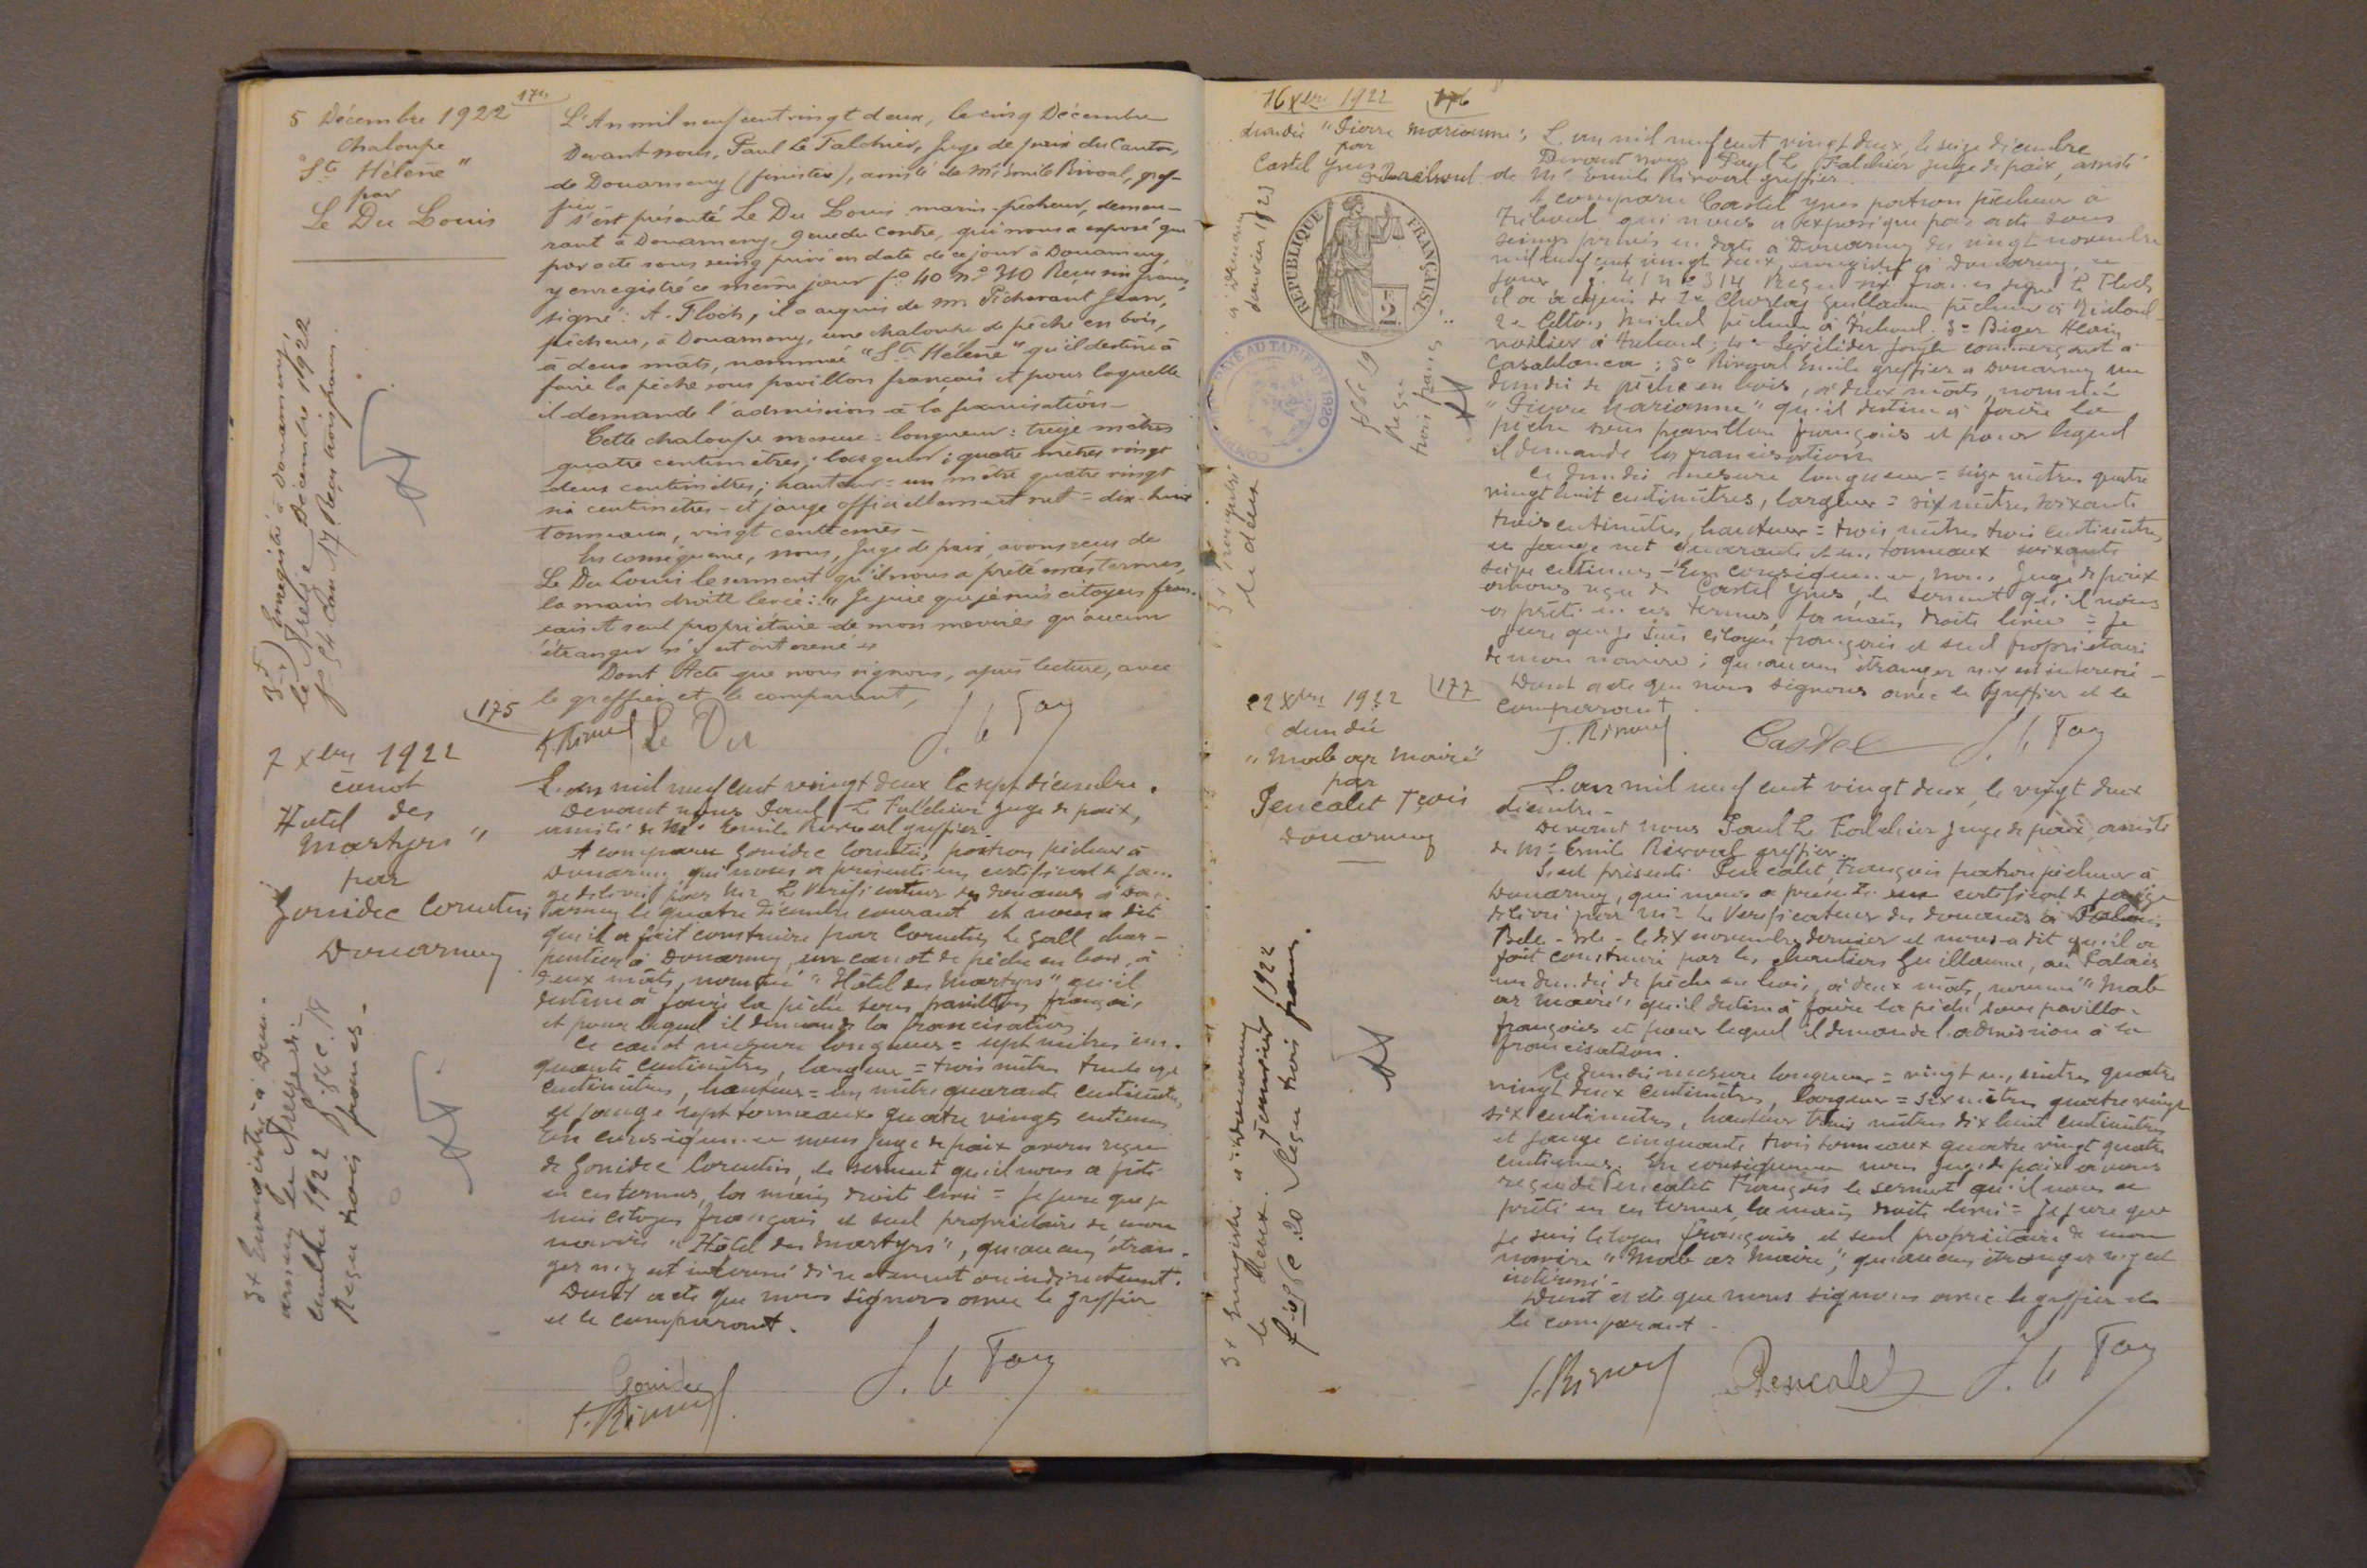 174
5 Décembre 1922
Chaloupe
"Ste Hélène"
par
Le Du Louis
L'An mil neuf cent vingt deux, le cinq Décembre
Devant nous, Paul Le Falchier, Juge de paix du Canton
de Douarnenez (finistère), assisté de Mr Emile Rivoal, gref-
fier s'est présenté Le Du Louis marin-pêcheur, demeu-
rant à Douarnenez, 9 rue du Centre, qui nous a exposé que
par acte sous seing privé en date de ce jour à Douarnenez,
y enregistré ce même jour fo 40 no 310 Reçu six francs,
signé: A. Floch, il a acquis de Mr Pichavant Jean,
pêcheur, à Douarnenez, une chaloupe de pêche en bois,
à deux mâts, nommée "Ste Hélène" qu'il destine à
faire la pêche sous pavillon français et pour laquelle
il demande l'admission à la francisation -
Cette chaloupe mesure: longueur: treize mètres
quatre centimètres; largeur; quatre mètres vingt
deux centimètres; hauteur = un mètre quatre vingt
six centimètres - et jauge officiellement net = dix-huit
tonneaux, vingt centièmes -
En conséquence, nous, Juge de paix, avons reçu de
Le Du Louis le serment qu'il nous a prêté en ces termes,
la main droite levée: "Je jure que je suis citoyen fran-
çais et seul propriétaire de mon navire qu'aucun
étranger n'y est intéressé
Dont Acte que nous signons, après lecture, avec
le greffier et le comparant,
E. Rivoal Le Du
3f Enregistré à Douarnenez,
le Treize Décembre 1922
fo 84 Case 17 Reçu trois francs.
175
7 Xbre 1922
canot
Hotel des
Martyrs"
par
Gonidec Corentin
Douarnenez
L'an mil neuf cent vingt deux le sept décembre.
Devant nous Paul Le Falchier Juge de paix,
assisté de Mr Emile Rivoal greffier.
A comparu Gonidec Corentin, patron pêcheur à
Douarnenez qui nous a présenté un certificat de jau-
ge délivré par Mr Le Vérificateur des douanes à Dou-
arnenez le quatre décembre courant et nous a dit
qu'il a fait construire par Corentin Le Gall char-
pentier à Douarnenez, un canot de pêche en bois, à
deux mâts, nommé "Hôtel des Martyrs" qu'il
destine à faire la pêche sous pavillon français
et pour lequel il demande la francisation
Ce canot mesure longueur = sept mètres cin-
quante centimètres, largeur = trois mètres trente
centimètres, hauteur = un mètre quarante centimètres
et jauge sept tonneaux quatre vingts centièmes
En conséquence nous Juge de paix avons reçu
de Gonidec Corentin, le serment qu'il nous a prêté
en ces termes, la main droite levée = Je jure que je
suis citoyen français et seul propriétaire de mon
navire "Hôtel des Martyrs", qu'aucun étran-
ger n'y est intéressé directement ou indirectement.
Dont acte que nous signons avec le greffier
et le comparant.
Gonidec
E. Rivoal
3f Enregistré à Dou-
arnenez le Treize dé-
cembre 1922 fo 84 c. 18
Reçu trois francs -
16 Xbre 1922
176
dundée "Pierre Marianne"
par
Castel Yves
Tréboul
RÉPUBLIQUE FRANÇAISE
2
TARIF DE 1920
L'an mil neuf cent vingt deux, le seize décembre
Devant nous Paul Le Falchier juge de paix, assisté
de Mr Emile Rivoal greffier
A comparu Castel Yves patron pêcheur à
Tréboul qui nous a exposé que par acte sous
seings privés en date à Douarnenez du vingt novembre
mil neuf cent vingt deux, enregistré à Douarnenez, ce
jour fo 41 no 314 Reçu six francs signé Le Floch
il a acquis de 1o Charlay Guillaume pêcheur à Tréboul
2o Celton Michel pêcheur à Tréboul. 3o Biger Alain
voilier à Tréboul; 4o joseph commerçant à
Casablanca; 5o Rivoal Emile greffier à Douarnenez un
dundée de pêche en bois, à deux mâts, nommé
"Pierre Marianne" qu'il destine à faire la
pêche sous pavillon français et pour lequel
il demande la francisation
Ce dundée mesure longueur = seize mètres quatre
vingt huit centimètres, largeur = six mètres soixante
trois centimètres, hauteur = trois mètres trois centimètres
et jauge net quarante et un tonneaux soixante
seize centièmes - En conséquence, nous Juge de paix
avons reçu de Castel Yves, le serment qu'il nous
a prêté en ces termes, la main droite levée = Je
jure que je suis citoyen français et seul propriétaire
de mon navire; qu'aucun étranger n'y est intéressé -
Dont acte que nous signons avec le Greffier et le
comparant
E. Rivoal Castel
3f enregistré à Douarnenez
le deux janvier 1923
Reçu trois francs
177
22 Xbre 1922
dundée
"Mab ar Maire"
par
Pencalet Fçois
Douarnenez
L'an mil neuf cent vingt deux, le vingt deux
décembre -
Devant nous Paul Le Falchier Juge de paix, assisté
de Mr Emile Rivoal greffier.
S'est présenté Pencalet François patron pêcheur à
Douarnenez, qui nous a présenté un certificat de jauge
délivré par Mr Le Vérificateur des douanes à Palais
Belle-Isle - le dix novembre dernier et nous a dit qu'il a
fait construire par les chantiers Guillaume, au Palais
un dundée de pêche en bois, à deux mâts, nommé "Mab
ar Maire" qu'il destine à faire la pêche sous pavillon
français et pour lequel il demande l'admission à la
francisation.
Ce dundée mesure longueur = vingt un mètres quatre
vingt deux centimètres, largeur = six mètres quatre vingt
six centimètres, hauteur trois mètres dix huit centimètres
et jauge cinquante trois tonneaux quatre vingt quatre
centièmes. En conséquence nous juge de paix avons
reçu de Pencalet François le serment qu'il nous a
prêté en ces termes, la main droite levée = je jure que
je suis citoyen français et seul propriétaire de mon
navire "Mab ar Maire", qu'aucun étranger n'y est
intéressé -
Dont acte que nous signons avec le greffier et
le comparant -
E. Rivoal Pencalet
3f Enregistré à Douarnenez
le deux Janvier 1922
fo 86 c. 20 Reçu trois francs.